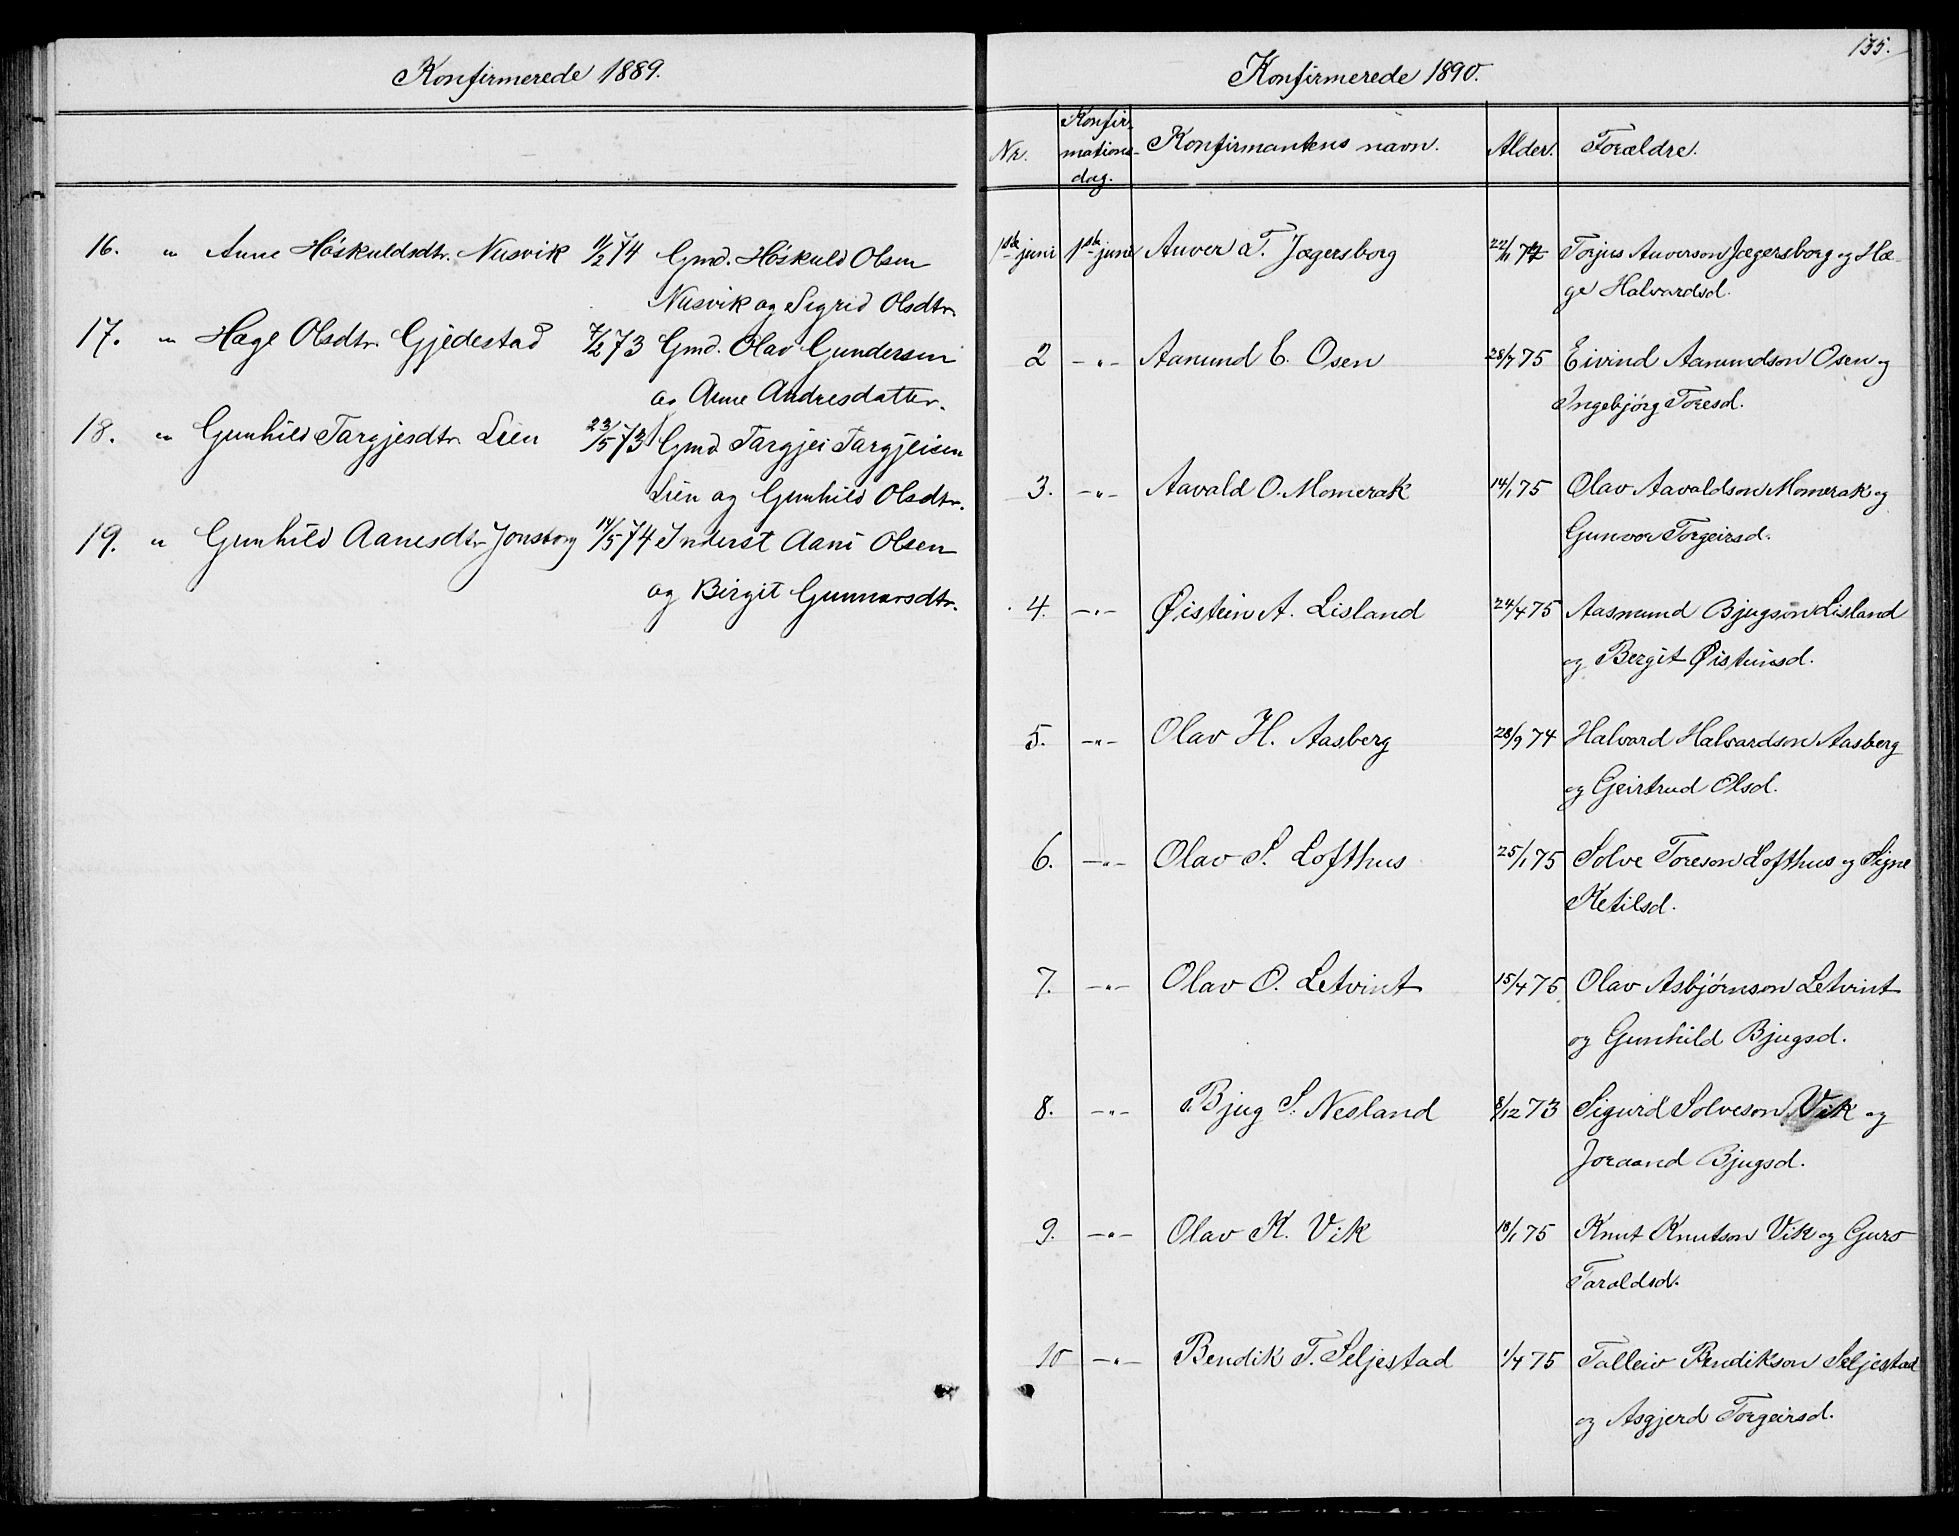 Konfirmerede 1889.
16. " Anne Höskuldsdtr. Nusvik 11/2 74 Gmd. Höskuld Olsen
Nusvik og Sigrid Olsdtr.
17. " Hæge Olsdtr. Gjedestad 7/2 73 Gmd. Olav Gundersen
og Anne Andresdatter.
18. " Gunhild Targjesdtr. Lien 23/5 73 Gmd Targjei Targjeisen
Lien og Gunhild Olsdtr.
19. " Gunhild Aanesdtr Jonsborg 14/5 74 Inderst Aani Olsen
og Birgit Gunnarsdtr.
135.
Konfirmerede 1890.
Nr. Konfir-
mations-
dag. Konfirmantens navn. Alder. Forældre.
1ste juni 1ste juni Anver T. Jægersborg 22/1 74 Torjus Anverson Jægersborg og Hæ-
ge Halvardsd.
2 -"- Aanund E. Osen 28/7 75 Eivind Aanundson Osen og
Ingebjörg Toresd.
3. -"- Aavald O. Momrak 14/1 75 Olav Aavaldson Momrak og
Gunvor Torgeirsd.
4. -"- Øistein A. Lisland 24/4 75 Aasmund Bjugson Lisland
og Bergit Øisteinsd.
5. -"- Olav H. Aasberg 28/9 74 Halvard Halvardson Aasberg
og Geirtrud Olsd.
6. -"- Olav S. Lofthus 25/1 75 Solve Toreson Lofthus og Signe
Ketilsd.
7. -"- Olav O. Letvint 15/4 75 Olav Asbjørnson Letvint
og Gunhild Bjugsd.
8. -"- Bjug S. Nesland 8/12 73 Sigurd Solveson Vik og
Joraand Bjugsd.
9. -"- Olav K. Vik 18/1 75 Knut Knutson Vik og Guro
Taraldsd.
10 -"- Bendik T. Seljestad 1/4 75 Talleiv Bendikson Seljestad
og Asgjerd Torgeirsd.